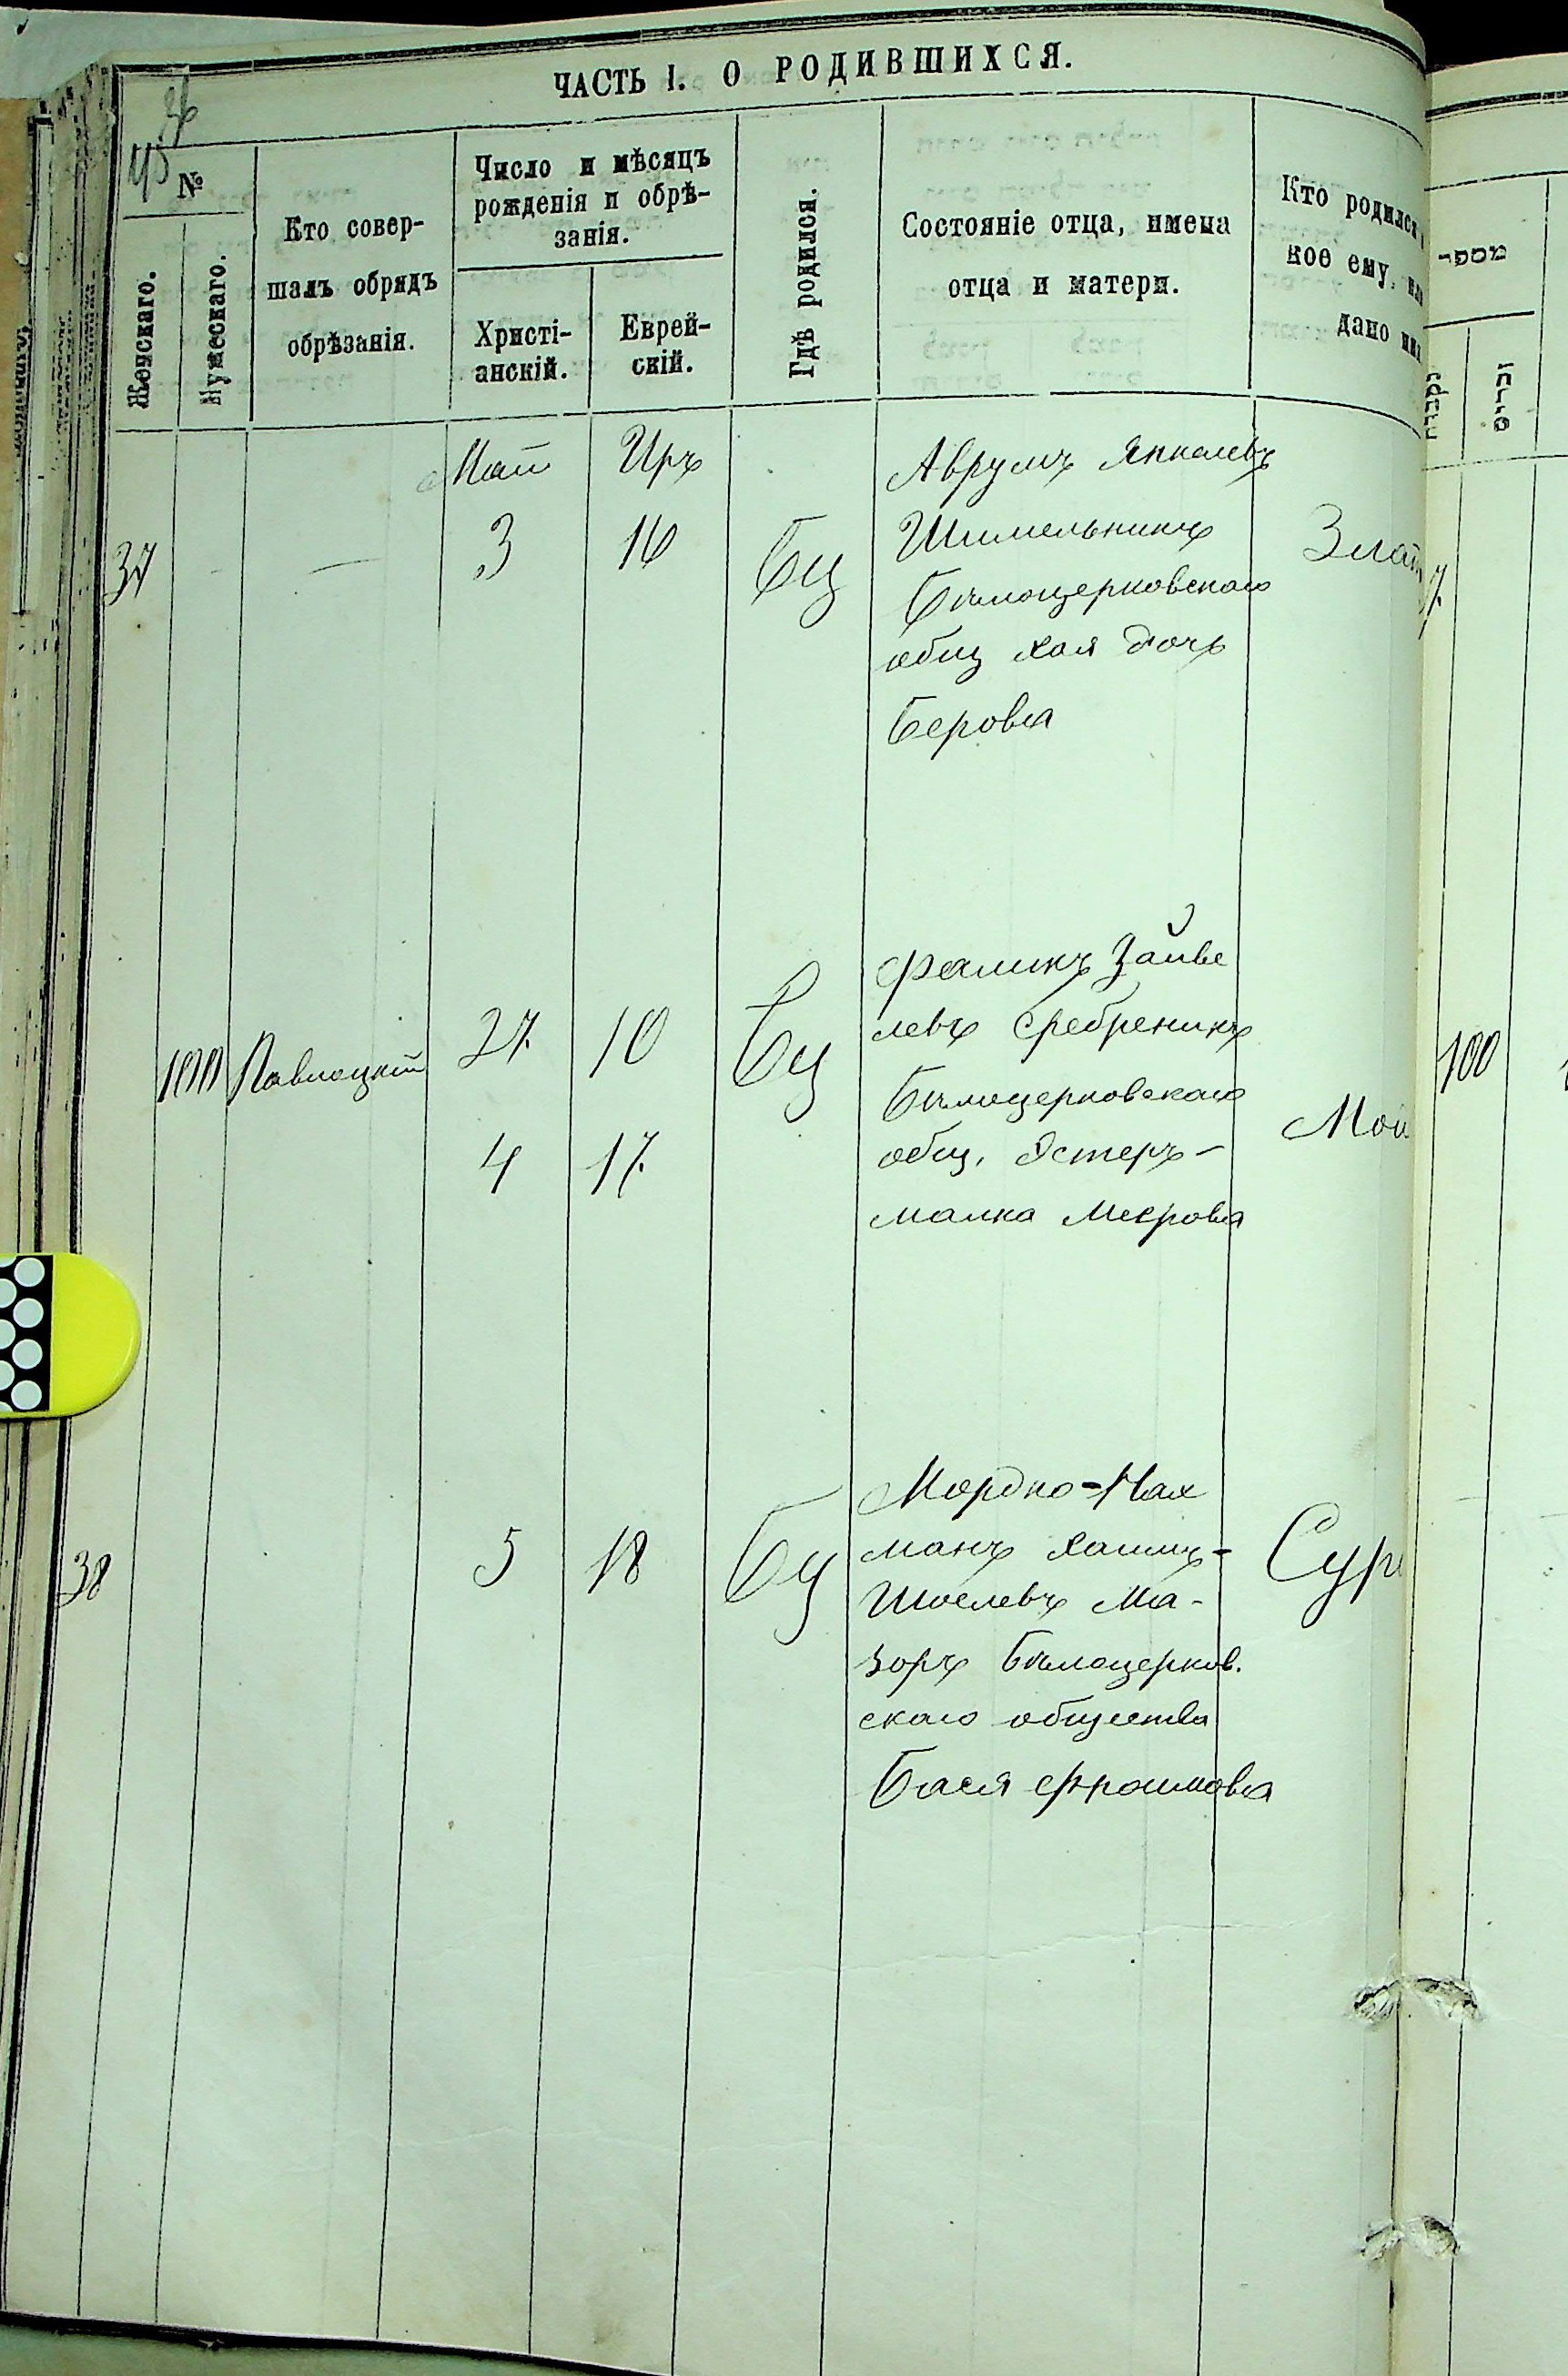 ЧАСТЬ I. О РОДИВШИХСЯ.
45
№
Женскаго.
Мужескаго.
Кто совер-
шалъ обрядъ
обрѣзанія.
Число и мѣсяцъ
рожденія и обрѣ-
занія.
Христі-
анскій.
Еврей-
скій.
Гдѣ родился.
Состояніе отца, имена
отца и матери.
Кто родился
кое ему,
дано
מספר
Май
Иръ
37
—
3
16
Бц
Аврумъ Янкелевъ
Шимельникъ
Бѣлоцерковскаго
общ Хая дочь
Берова
Злат
100
Паволоцкій
27
10
Бц
4
17
Фаликъ Зайве
левъ Сребреникъ
Бѣлоцерковскаго
общ. Эстеръ-
малка Меерова
Мои
100
38
5
18
Бц
Мордко=Нах
манъ Хаимъ-
Шоелевъ Ма-
зоръ Бѣлоцерков.
скаго общества
Бася Фроимова
Сур